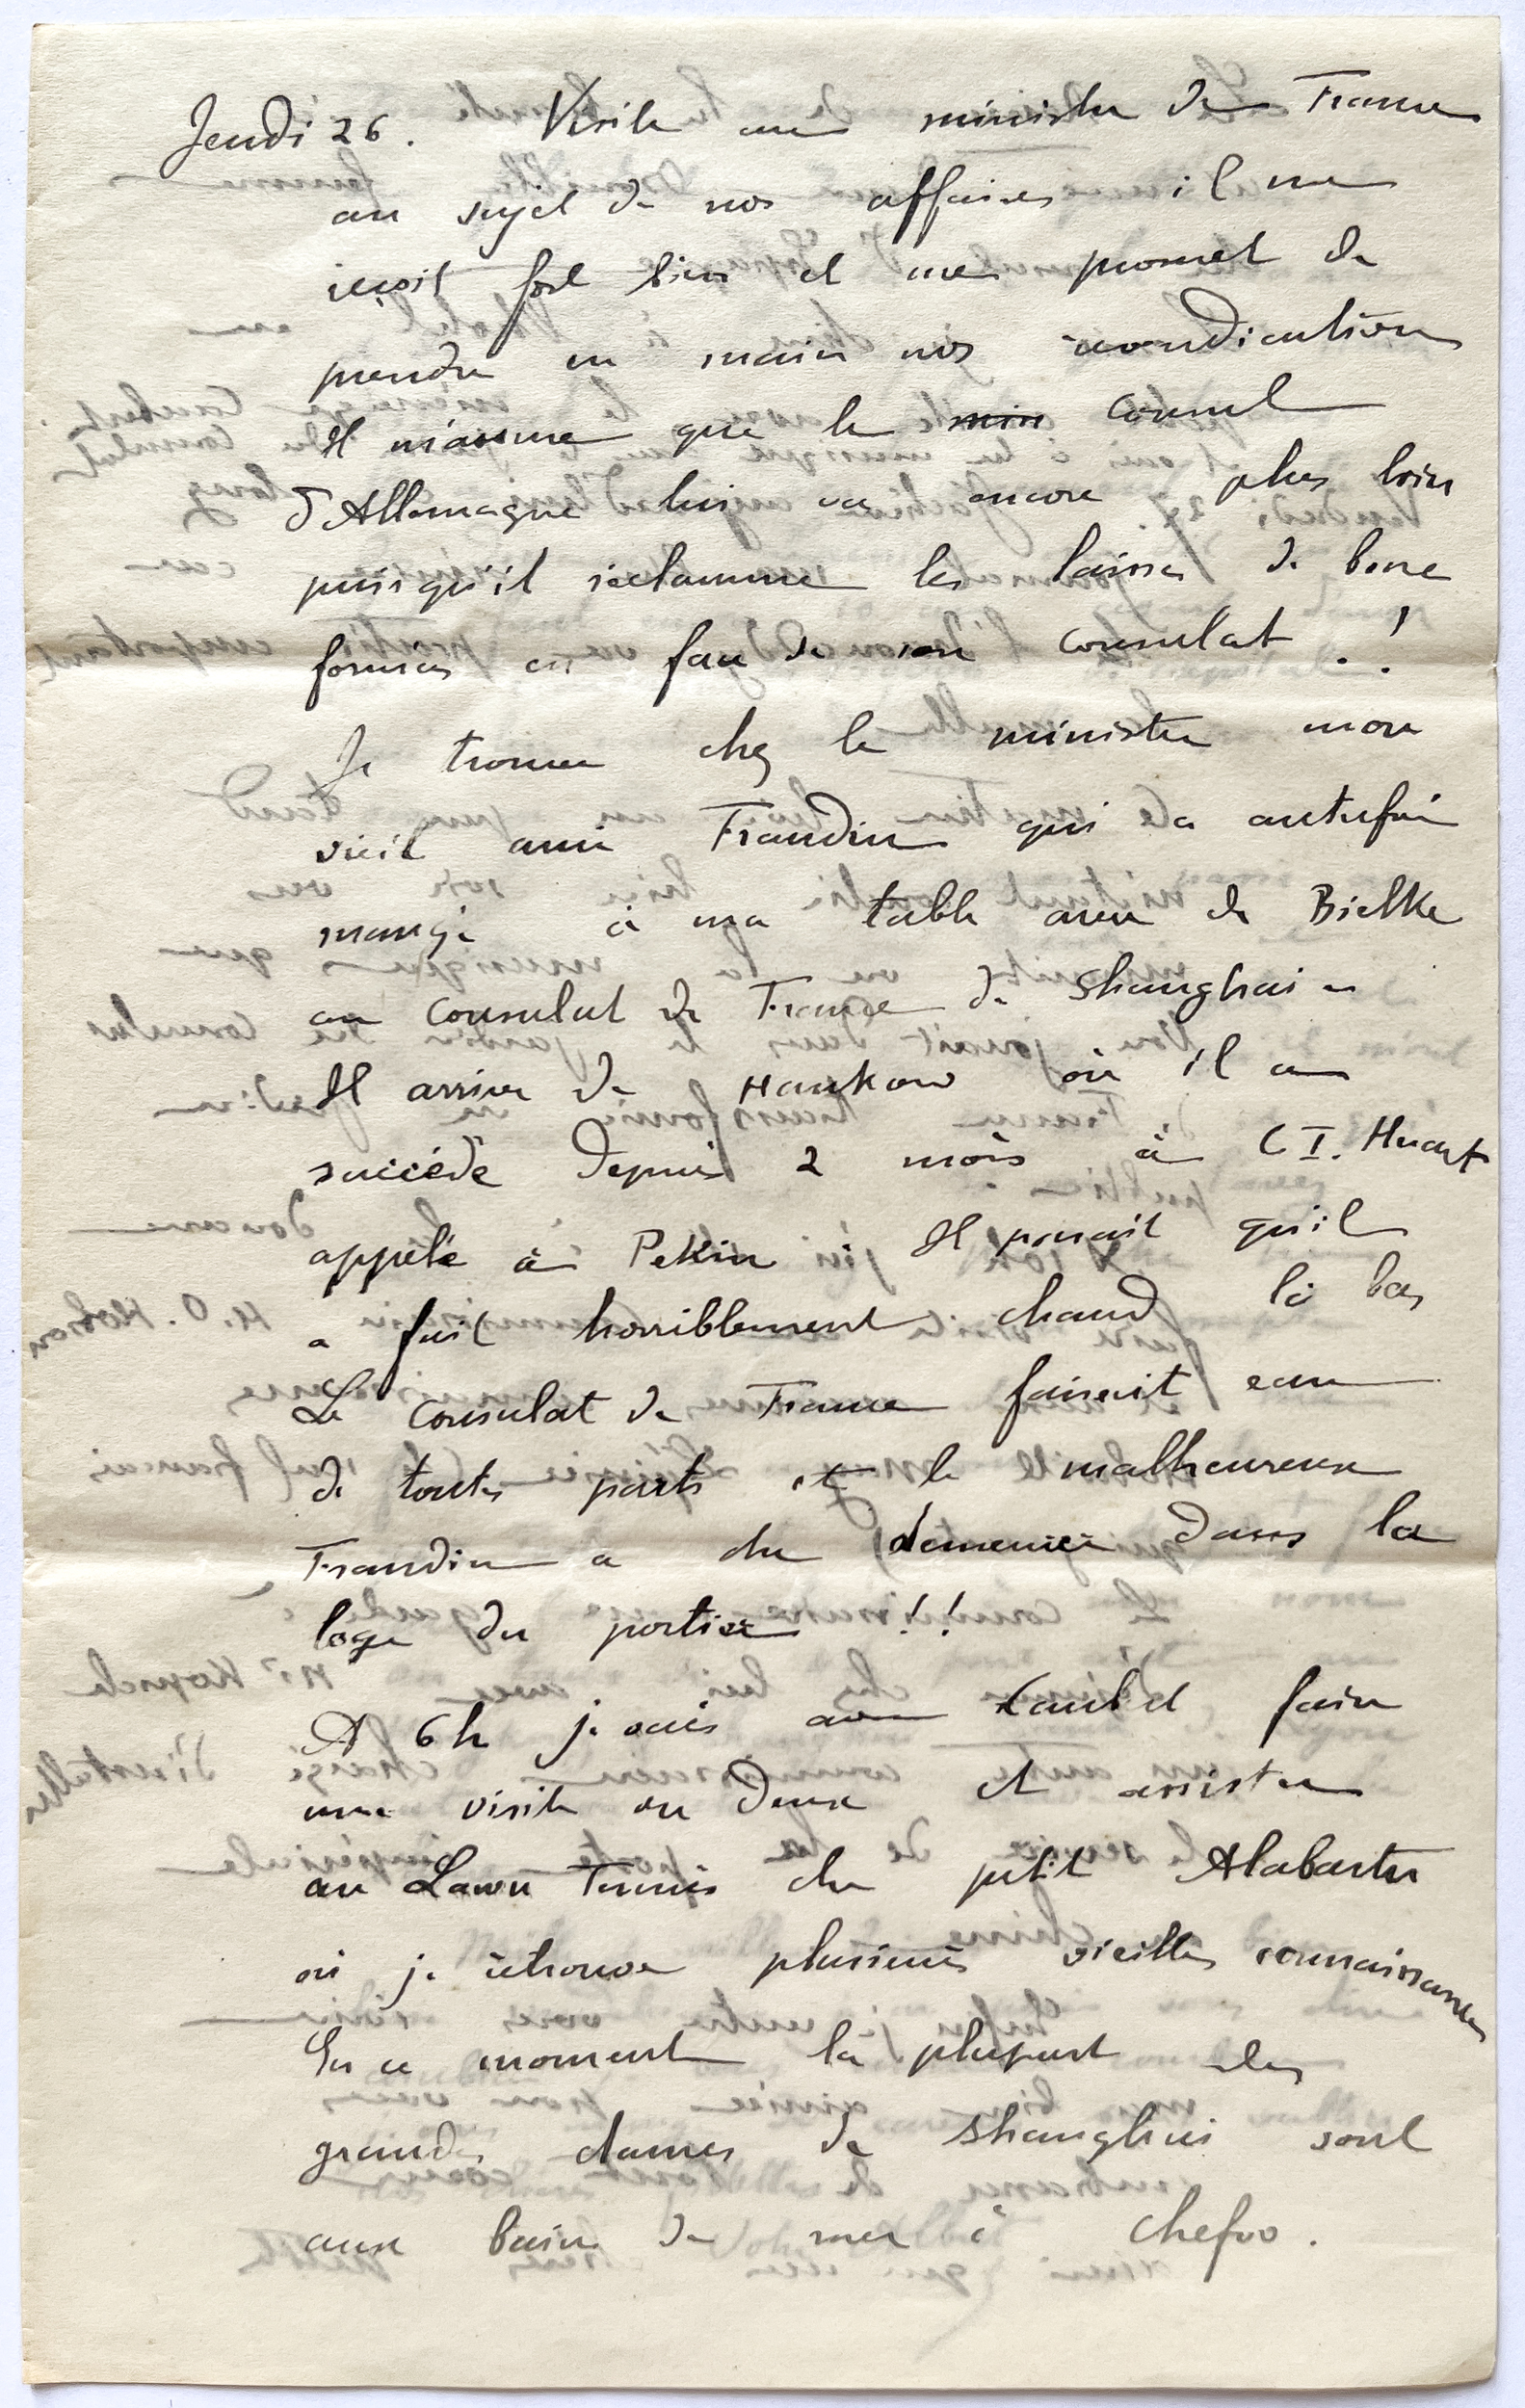 Jeudi 26. Visite au ministre de France
au sujet de nos affaires il me
reçoit fort bien et me promet de
prendre en main nos revendications
Il m'assure que le min consul
d'Allemagne lui va encore plus loin
puisqu'il réclamme les laisses de boue
formées en face de son consulat . !
Je trouve chez le ministre mon
vieil ami Frandin qui a autrefois
mangé à ma table avec de Bielke
au consulat de France de Shanghai
Il arrive de Hankow où il a
succédé depuis 2 mois à C I. Huart
appelé à Pekin . Il parait qu'il
a fait horriblement chaud là bas
Le consulat de France faisait eau
de toutes parts et le malheureux
Frandin a du demeurer dans la
loge du portier !!
A 6h je vais avec faire
une visite ou deux et assister
au Lawn Tennis du petit Alabaster
où je retrouve plusieurs vieilles connaissances
En ce moment la plupart des
grandes dames de Shanghai sont
aux bains de mer à Chefoo .